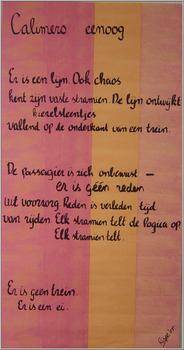 Calimero eenoog
Er is een lijn. Ook chaos
kent zijn vaste stramien. De lijn ontwijkt
kiezelsteentjes
vallend op de onderkant van een trein.
De passagier is zich onbewust –
er is géén reden
tot voorzorg. Reden is verleden tijd
van rijden. Elk stramien telt de logica op.
Elk stramien telt.
Er is geen trein.
Er is een ei.